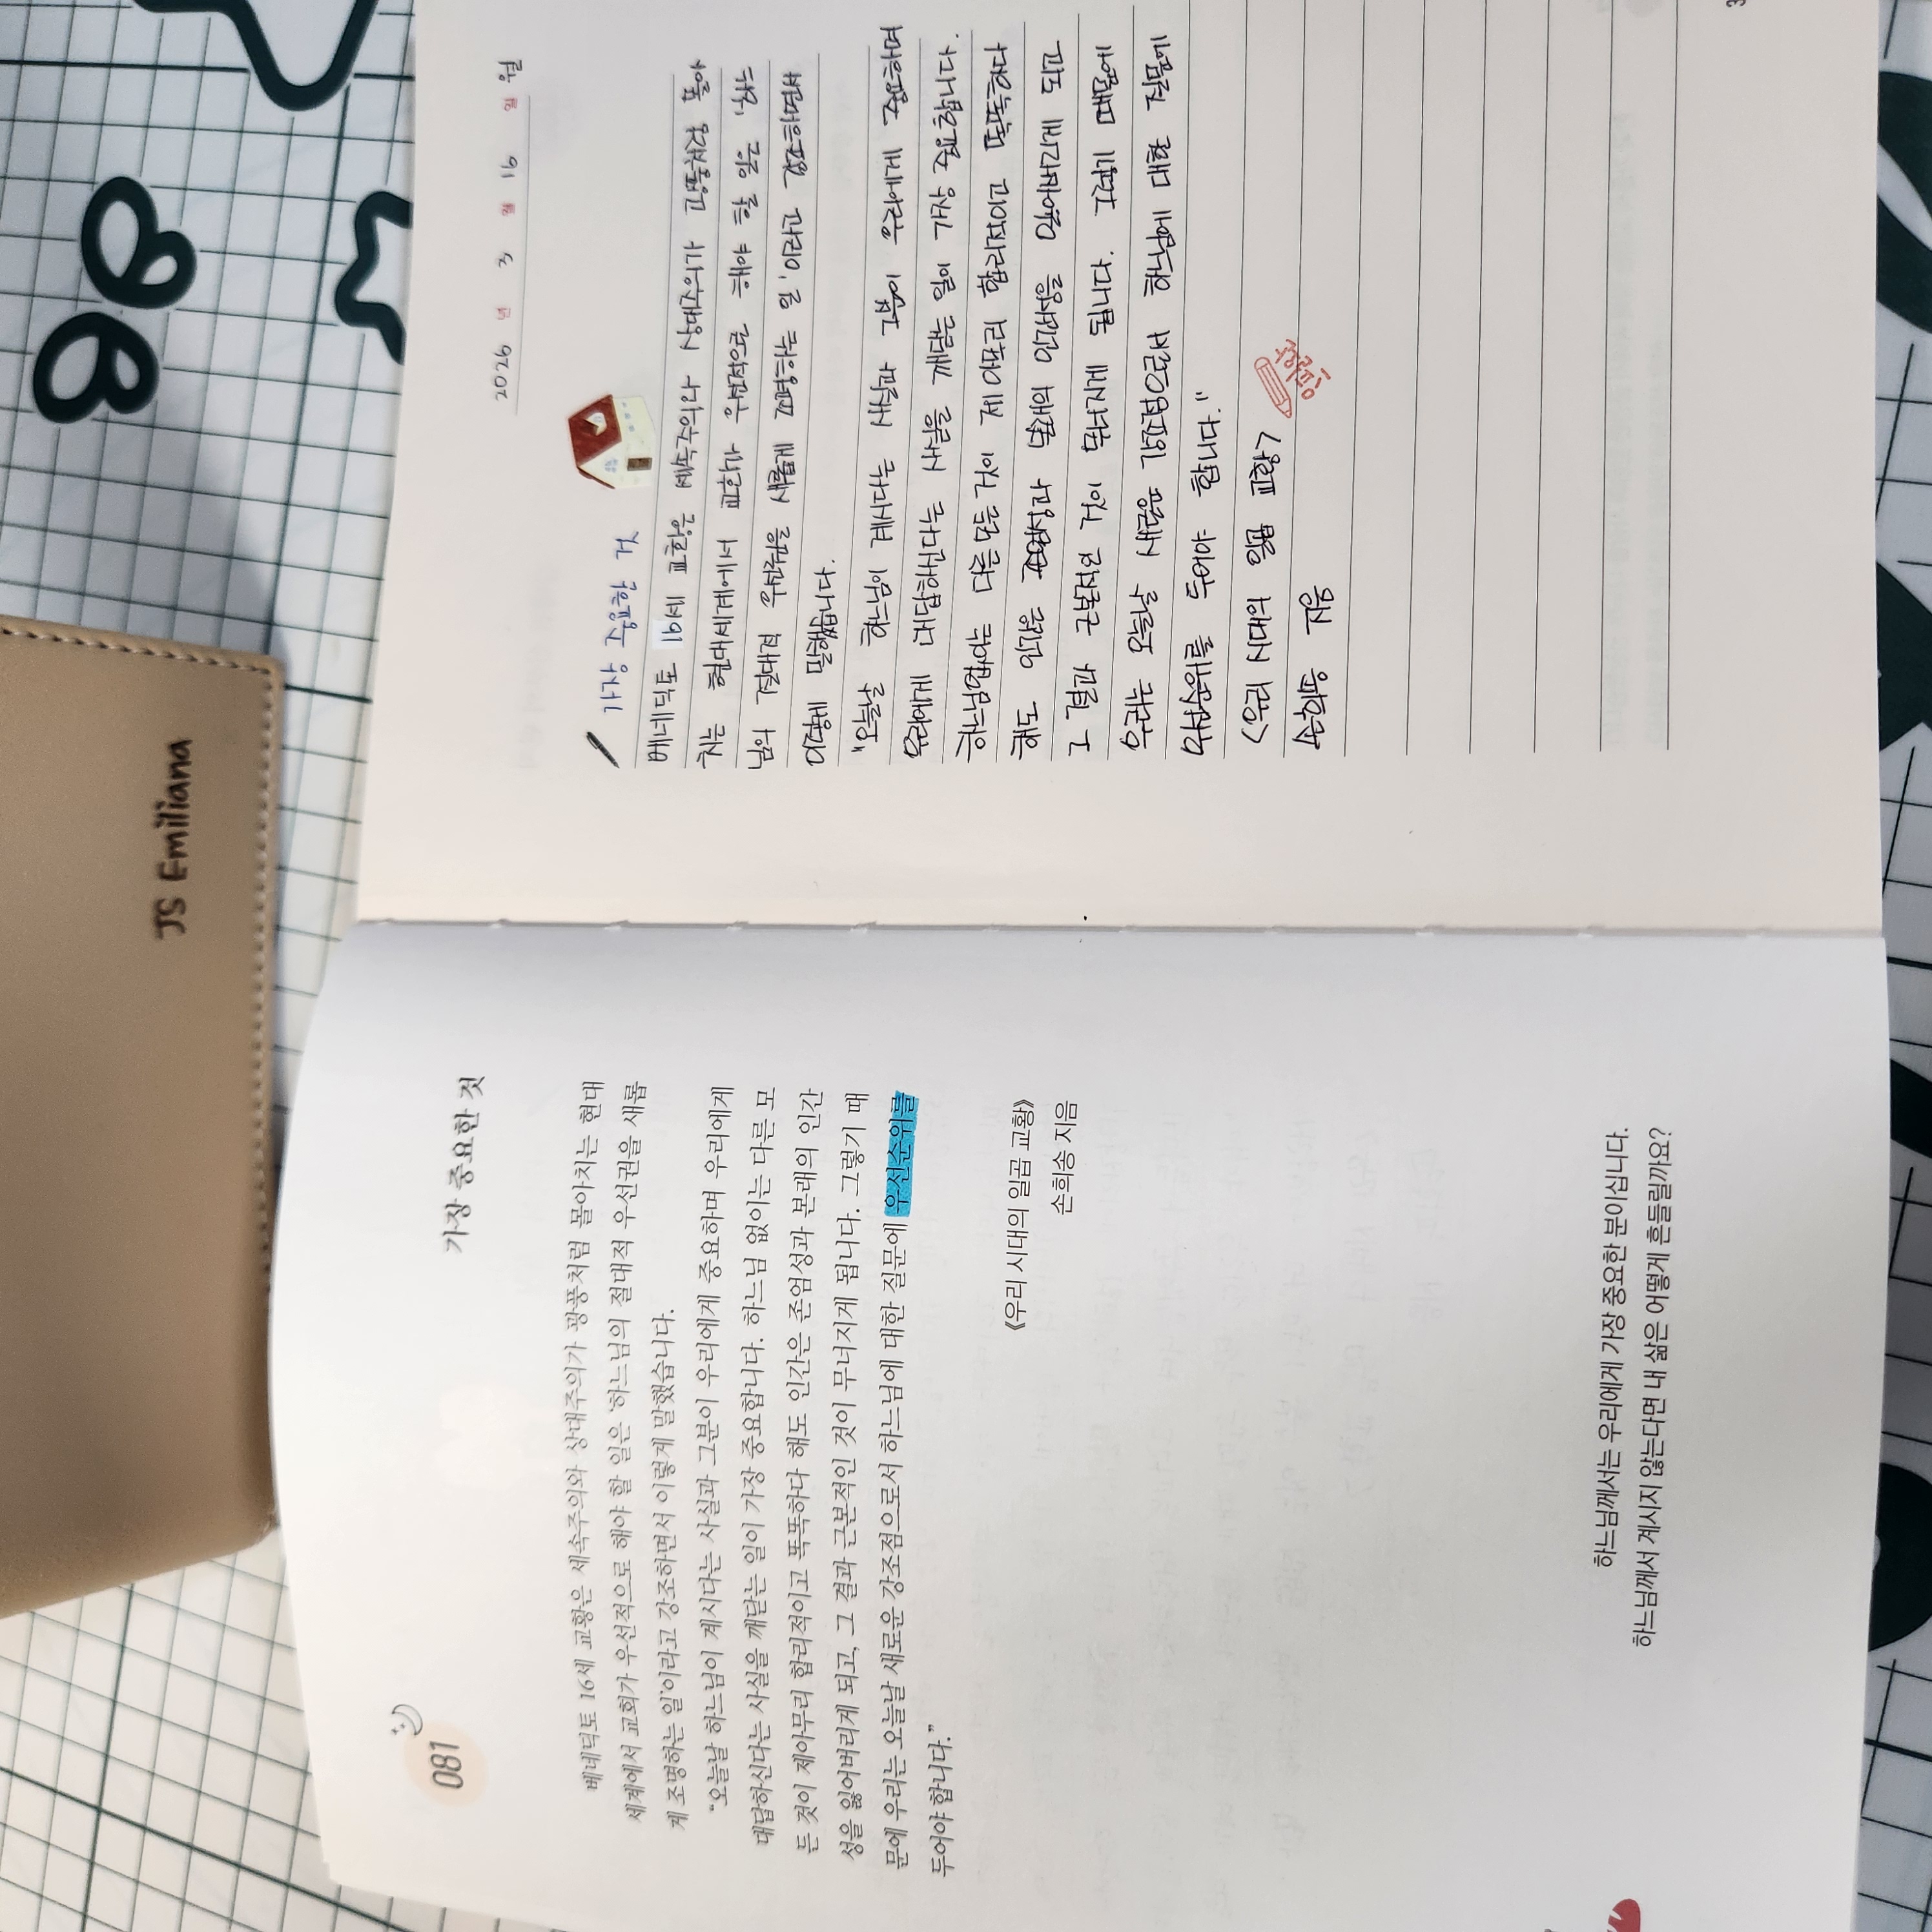 JS Emiliana
081
가장 중요한 것
베네딕토 16세 교황은 세속주의와 상대주의가 광풍처럼 몰아치는 현대
세계에서 교회가 우선적으로 해야 할 일은 '하느님의 절대적 우선권을 새롭
게 조명하는 일'이라고 강조하면서 이렇게 말했습니다.
"오늘날 하느님이 계시다는 사실과 그분이 우리에게 중요하며 우리에게
대답하신다는 사실을 깨닫는 일이 가장 중요합니다. 하느님 없이는 다른 모
든 것이 제아무리 합리적이고 똑똑하다 해도 인간은 존엄성과 본래의 인간
성을 잃어버리게 되고, 그 결과 근본적인 것이 무너지게 됩니다. 그렇기 때
문에 우리는 오늘날 새로운 강조점으로서 하느님에 대한 질문에 우선순위를
두어야 합니다."
《우리 시대의 일곱 교황》
손희송 지음
하느님께서는 우리에게 가장 중요한 분이십니다.
하느님께서 계시지 않는다면 내 삶은 어떻게 흔들릴까요?
2026 년 3 월 16 일 월
가장 중요한 것
베네딕토 16세 교황은 세속주의와 상대주의가 광풍처럼 몰아
치는 현대세계에서 교회가 우선적으로 해야 할 일은 '하느
님의 절대적 우선권을 새롭게 조명하는 일'이라고 강조하면서
이렇게 말했습니다.
"오늘날 하느님이 계시다는 사실과 그분이 우리에게 중요하며
우리에게 대답하신다는 사실을 깨닫는 일이 가장 중요합니다.
하느님 없이는 다른 모든 것이 제아무리 합리적이고 똑똑하다
해도 인간은 존엄성과 본래의 인간성을 잃어버리게 되고
그 결과 근본적인 것이 무너지게 됩니다. 그렇기 때문에
우리는 오늘날 새로운 강조점으로서 하느님에 대한 질문에
우선순위를 두어야 합니다."
<우리 시대의 일곱 교황>
손희송 지음